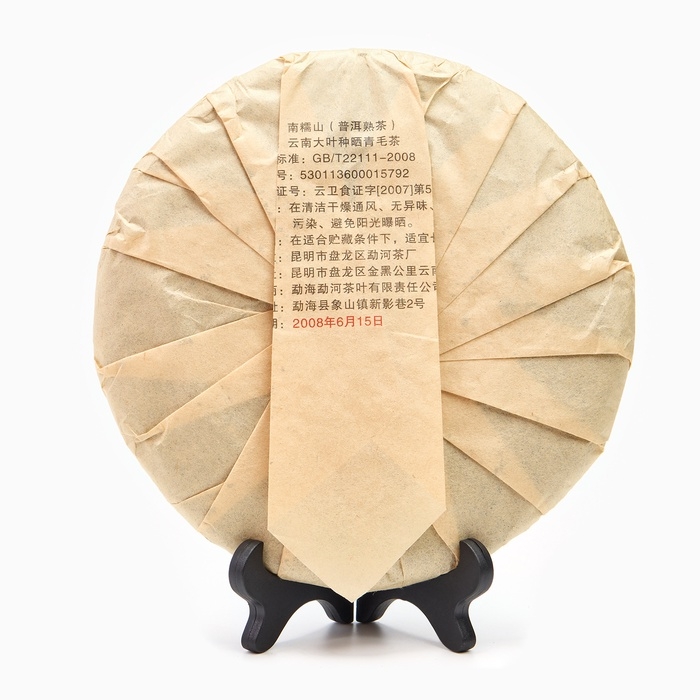 南糯山（普洱熟茶）
云南大叶种晒青毛茶
标准：GB/T22111-2008
号：530113600015792
证号：云卫食证字[2007]第5
：在清洁干燥通风、无异味、
污染、避免阳光曝晒。
：在适合贮藏条件下，适宜
：昆明市盘龙区勐河茶厂
：昆明市盘龙区金黑公里云南
：勐海勐河茶叶有限责任公司
：勐海县象山镇新影巷2号
：2008年6月15日